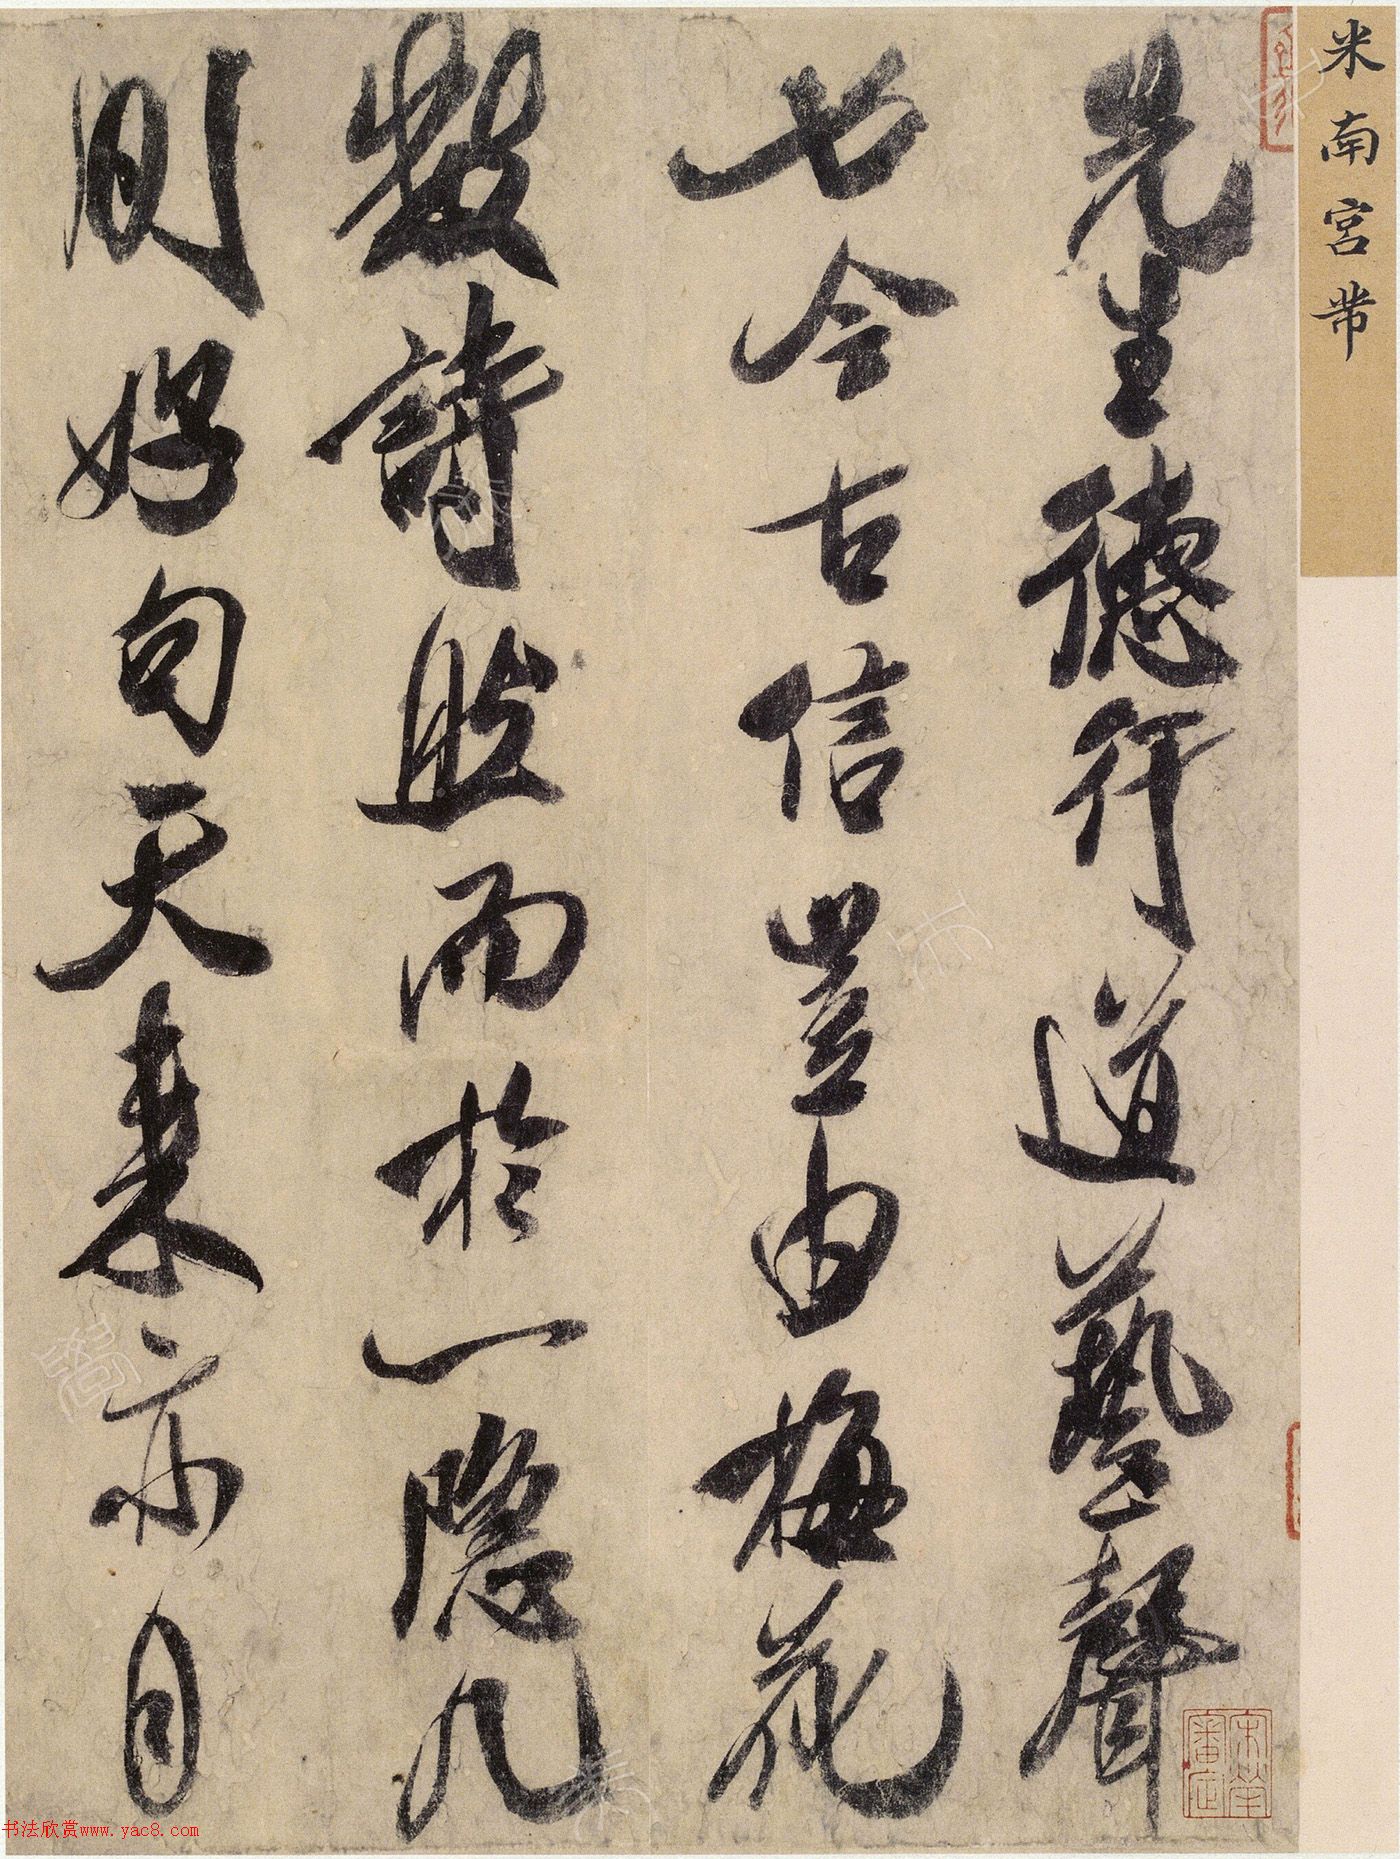 米南宮芾
先生德行道藝聲
今古信豈由梅花
數詩然而於一隱几
間好句天來亦自
宋犖審定
书法欣赏www.yac8.com